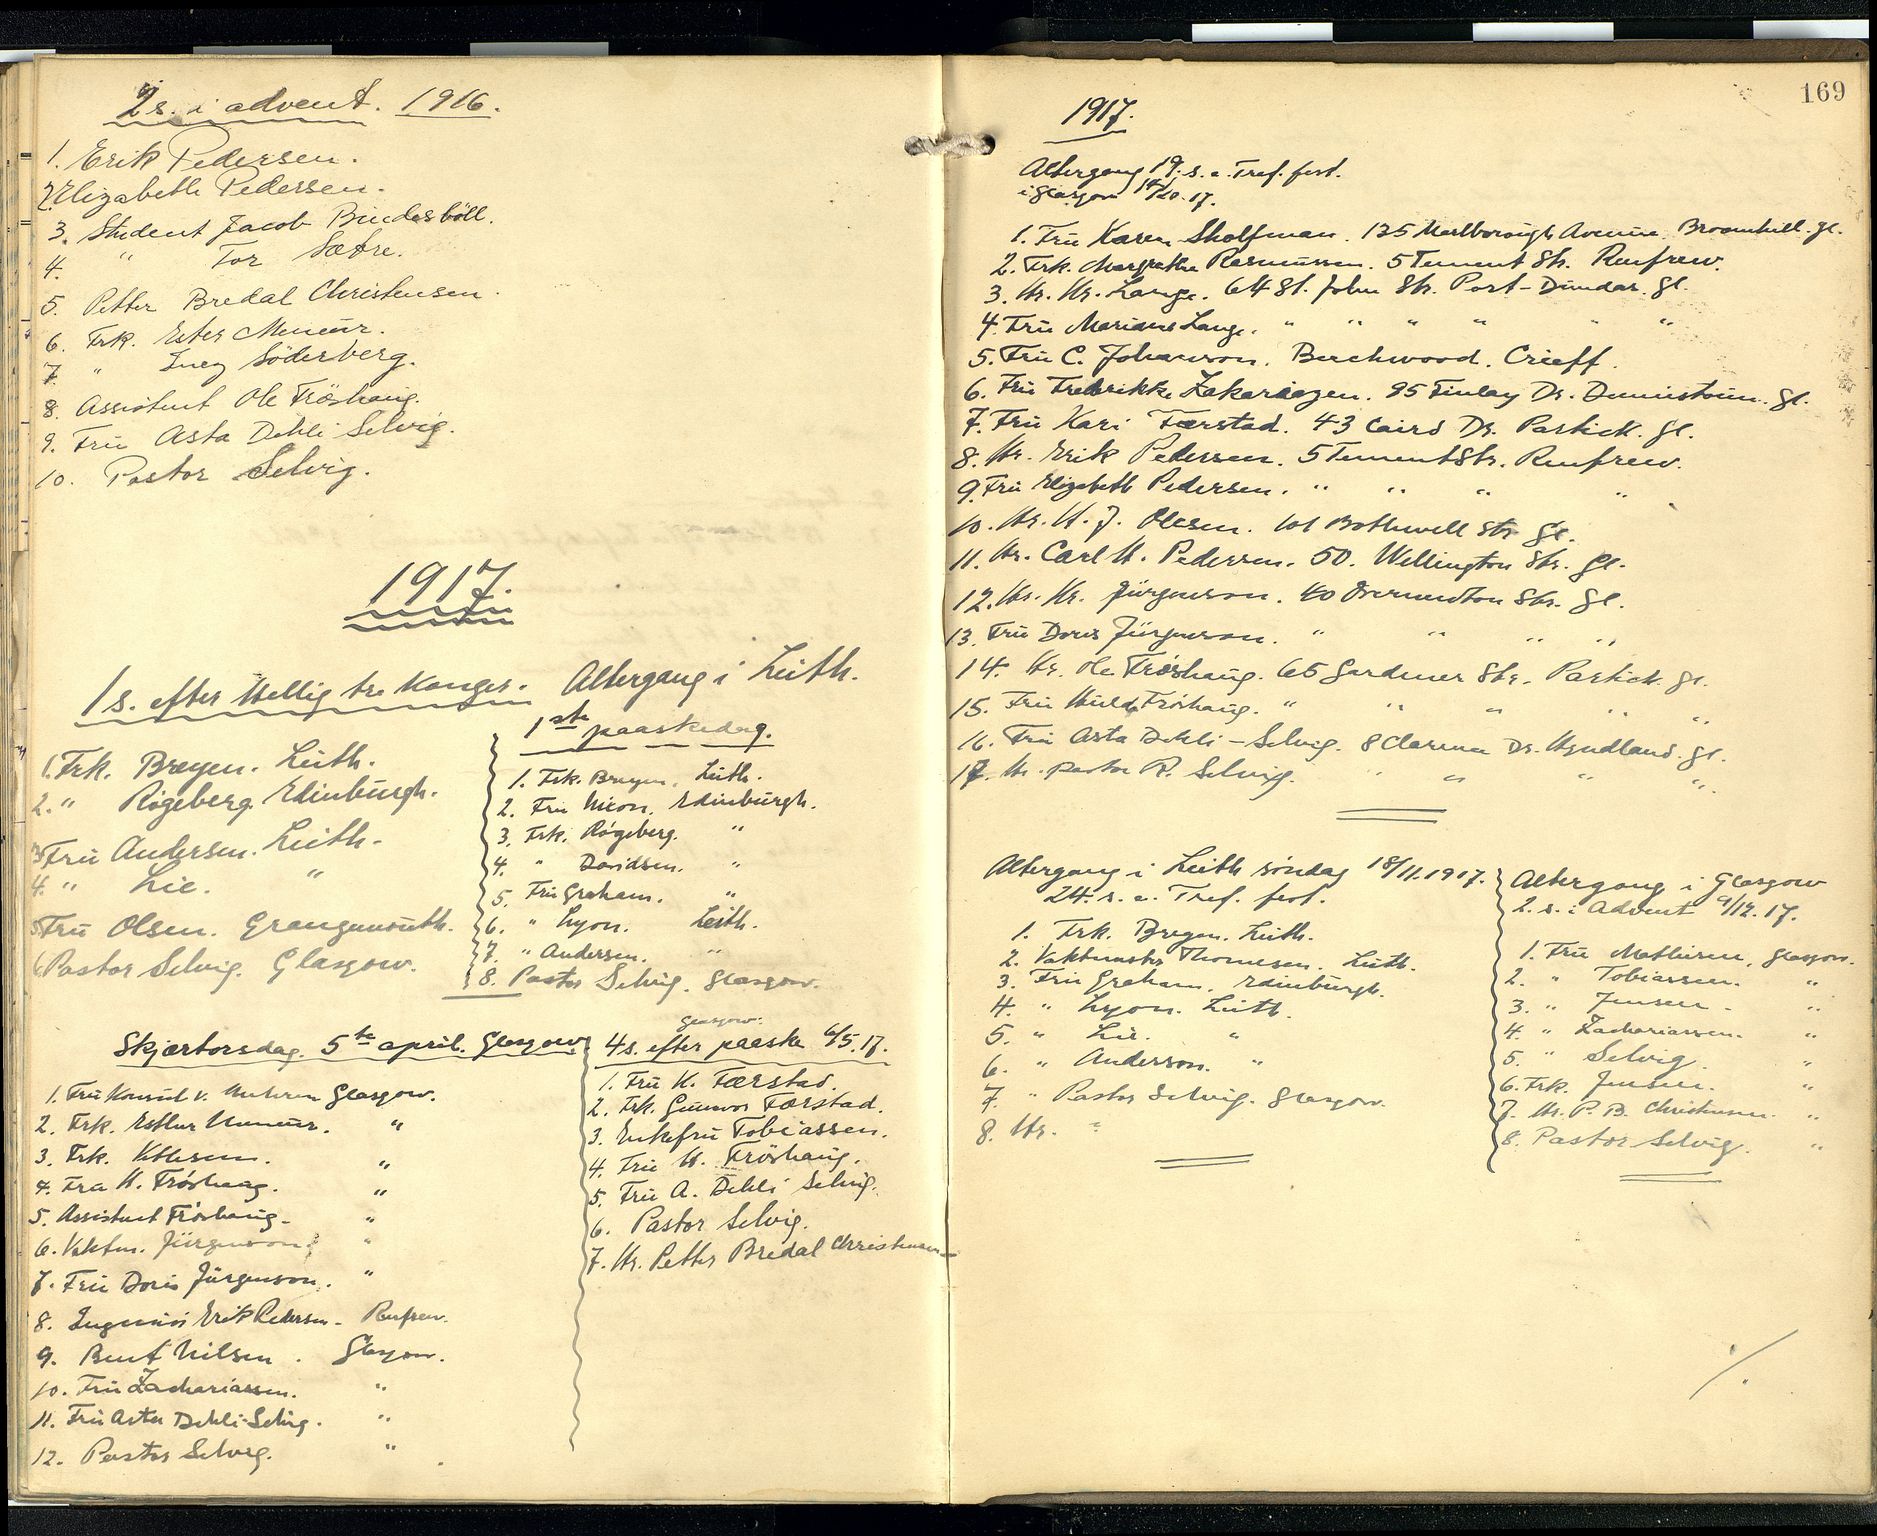 2 s. i advent. 1916.
1. Erik Pedersen.
2. Elizabeth Pedersen.
3. Student Jacob Bindesböll.
4. " Tor Sætre.
5. Petter Bredal Christensen.
6. Frk. Ester Meneur.
7. " Inez Söderberg.
8. Assistent Ole Fröshaug.
9. Fru Asta Dehli Selvig.
10. Pastor Selvig.
1917.
1 s. efter Hellig tre Konger.
1. Frk. Breyen. Leith.
2. " Rögeberg. Edinburgh.
3. Fru Andersen. Leith.
4. " Lie. "
5. Fru Olsen. Grangemouth.
6. Pastor Selvig. Glasgow.
Altergang i Leith.
1ste paaskedag.
1. Frk. Breyen, Leith.
2. Fru Nicon, Edinburgh.
3. Frk. Rögeberg. "
4. " Davidsen. "
5. Fru Graham. "
6. " Lyon. Leith.
7. " Andersen. "
8. Pastor Selvig. Glasgow.
Skjærtorsdag. 5te april. Glasgow
1. Fru Konsul v. Glasgow.
2. Frk. Esther "
3. Frk. "
4. Fru H. Fröshaug. "
5. Assistent Fröshaug. "
6. Vaktm. Jürgenson. "
7. Fru Doris Jürgenson. "
8. Ingeniör Erik Pedersen. Renfrew.
9. Bent Nilsen. Glasgow.
10. Fru Zachariassen. "
11. Fru Asta Dehli-Selvig. "
12. Pastor Selvig. "
Glasgow.
4 s. efter paaske 6/5.17.
1. Fru K. Færstad.
2. Frk. Gunvor Færstad.
3. Enkefru Tobiassen.
4. Fru H. Fröshaug.
5. Fru A. Dehli Selvig.
6. Pastor Selvig.
7. Hr. Petter Bredal Christensen
169
1917.
Altergang 19. s. e. Tref. fest.
i Glasgow 14/10.17.
1. Fru Karen Skolfman. 135 Marlborough Avenue. Broomhill. Gl.
2. Frk. Margrethe Rasmussen. 5 Tement Str. Renfrew.
3. Hr. Hr. Lange. 64 St. John Str. Port-Dundas. Gl.
4. Fru Mariane Lange. " " " " " "
5. Fru C. Johanson. Birchwood. Crieff.
6. Fru Fredrikke Zakariazen. 95 Finlay Dr. Dennistoun. Gl.
7. Fru Kari Færstad. 43 Caird Dr. Partick. Gl.
8. Hr. Erik Pedersen. 5 Tement Str. Renfrew.
9. Fru Elizabeth Pedersen. " " " "
10. Hr. H. J. Olesen. 101 Bothwell Str Gl.
11. Hr. Carl H. Pedersen. 50. Wellington Str. Gl.
12. Hr. Hr. Jürgenson. 40 Str. Gl.
13. Fru Doris Jürgenson. " " " "
14. Hr. Ole Fröshaug. 65 Gardener Str. Partick. Gl.
15. Fru Huld Fröshaug. " " " " "
16. Fru Asta Dehli-Selvig. 8 Clarence Dr. Hyndland. Gl.
17. Hr. pastor R. Selvig. " " " "
Altergang i Leith söndag 18/11.1917.
24. s. e. Tref. fest.
1. Frk. Breyen. Leith.
2. Vaktmester Thomesen. Leith.
3. Fru Graham. Edinburgh.
4. " Lyon. Leith.
5. " Lie. "
6. " Anderson. "
7. " Pastor Selvig. Glasgow.
8. Hr. "
Altergang i Glasgow
2. s. i Advent 9/12.17.
1. Fru Mathisen, Glasgow.
2. " Tobiassen. "
3. " Jensen - "
4. " Zachariassen. "
5. " Selvig. "
6. Frk. Jensen. "
7. Hr. P. B. Christensen. "
8. Pastor Selvig. "